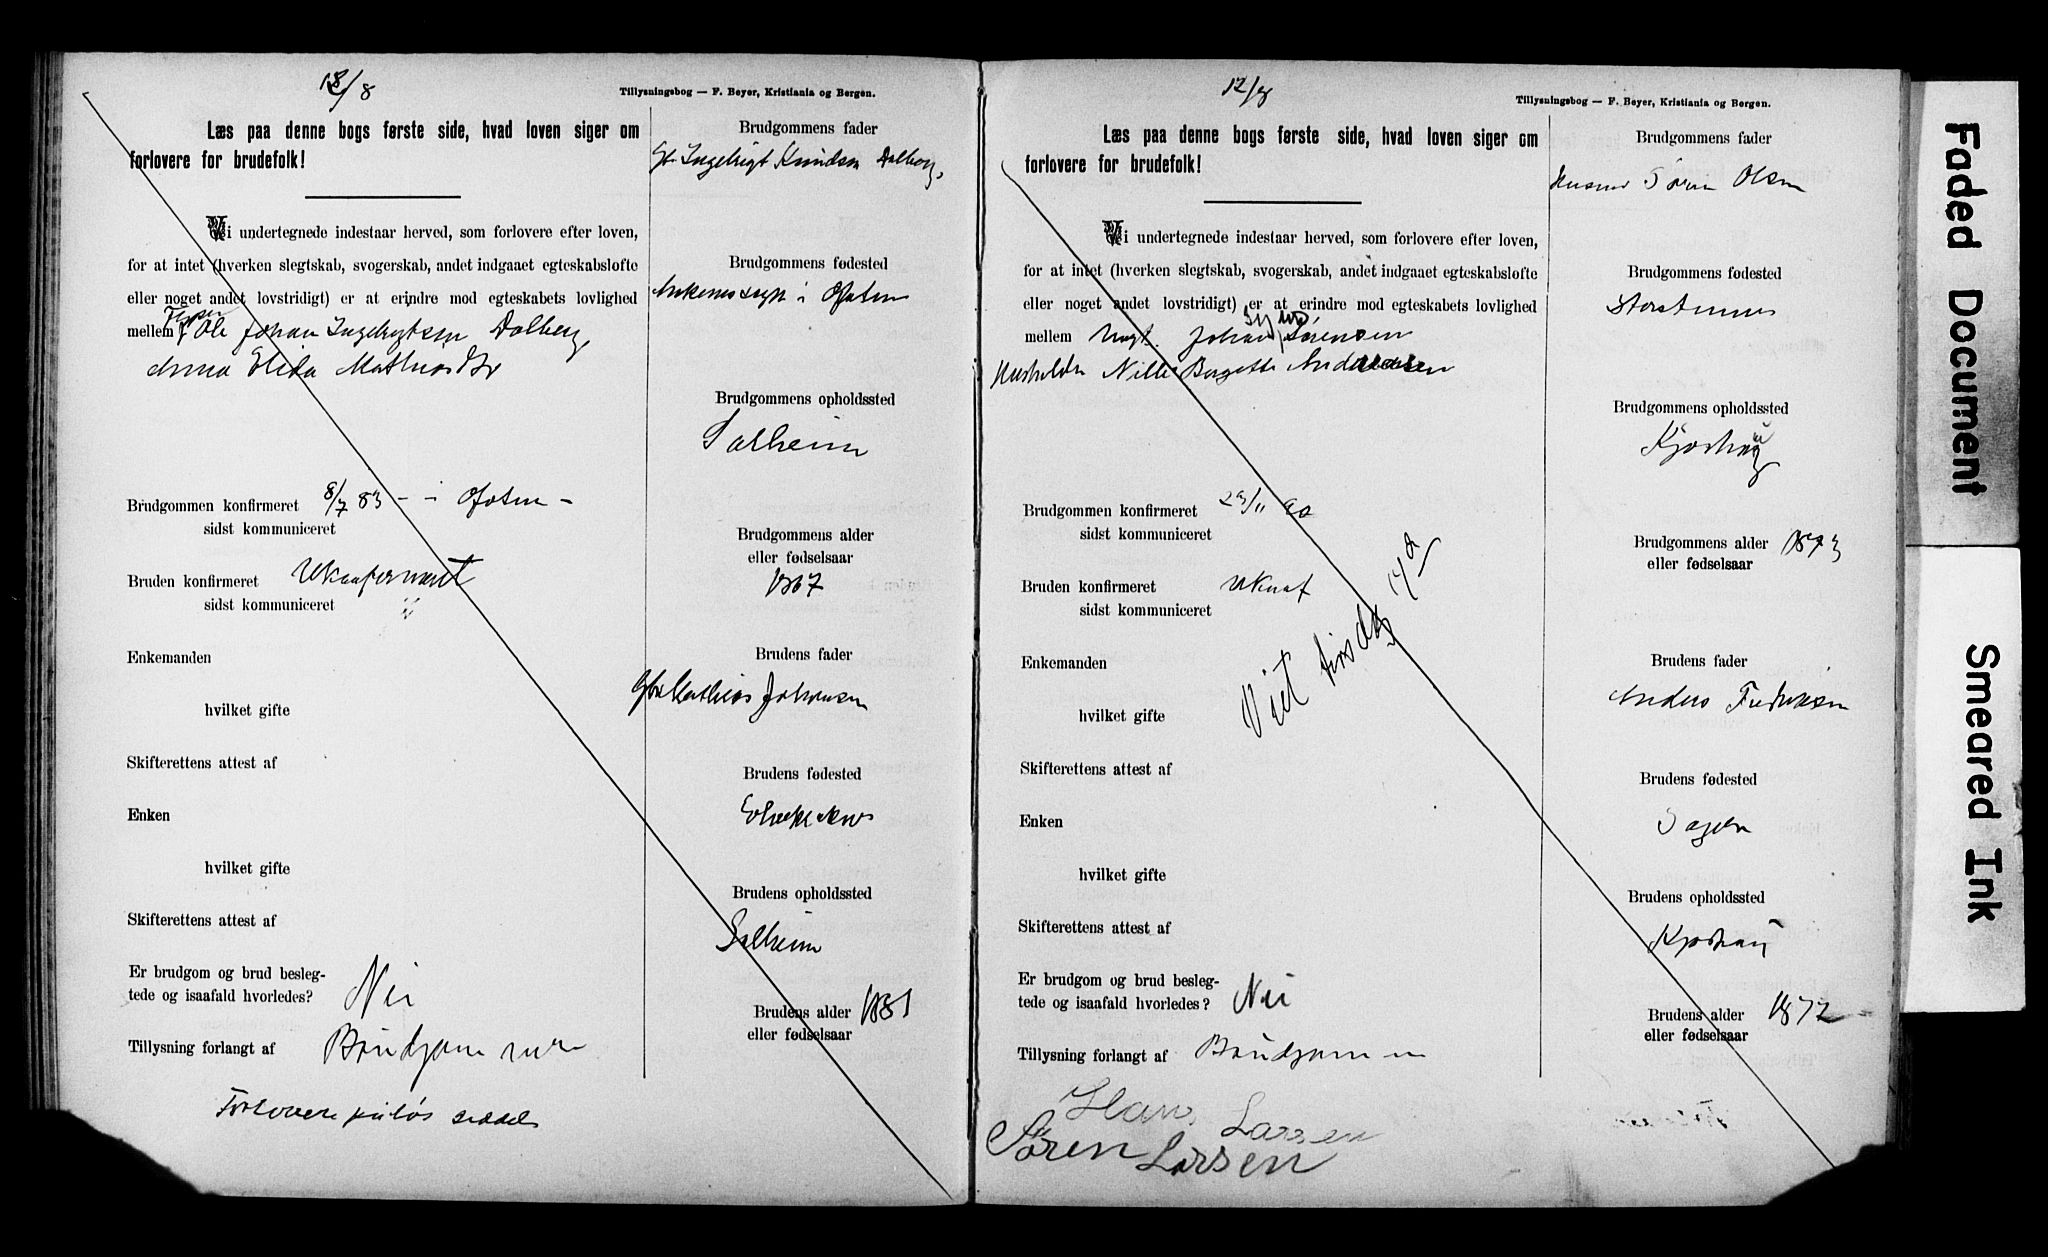 18/8
Tillysningsbog — F. Beyer, Kristiania og Bergen.
Læs paa denne bogs første side, hvad loven siger om
forlovere for brudefolk!
Vi undertegnede indestaar herved, som forlovere efter loven,
for at intet (hverken slegtskab, svogerskab, andet indgaaet egteskabsløfte
eller noget andet lovstridigt) er at erindre mod egteskabets lovlighed
mellem Ole Johan Ingebrigtsen Dalberg,
Anna Elida Mathias Dr
Brudgommen konfirmeret 8/7 83 - i Ofoten -
sidst kommuniceret
Bruden konfirmeret Ukonfirmeret
sidst kommuniceret
Enkemanden
hvilket gifte
Skifterettens attest af
Enken
hvilket gifte
Skifterettens attest af
Er brudgom og brud besleg-
tede og isaafald hvorledes? Nei
Tillysning forlangt af Brudgommen
Forlovere paa løs seddel
Brudgommens fader
Ingebrigt Knudsen Dalberg,
Brudgommens fødested
Ankenes sogn i Ofoten
Brudgommens opholdssted
Solheim
Brudgommens alder
eller fødselsaar
1867
Brudens fader
Mathias Johansen
Brudens fødested
Brudens opholdssted
Solheim
Brudens alder 1881
eller fødselsaar
12/8
Tillysningsbog — F. Beyer, Kristiania og Bergen.
Læs paa denne bogs første side, hvad loven siger om
forlovere for brudefolk!
Vi undertegnede indestaar herved, som forlovere efter loven,
for at intet (hverken slegtskab, svogerskab, andet indgaaet egteskabsløfte
eller noget andet lovstridigt) er at erindre mod egteskabets lovlighed
mellem Ungk. Johan Sørensen
Nille Bergette Andersen
Brudgommen konfirmeret 23/11 90
sidst kommuniceret
Bruden konfirmeret Ukonf
sidst kommuniceret
Viet tirsdag 17de
Enkemanden
hvilket gifte
Skifterettens attest af
Enken
hvilket gifte
Skifterettens attest af
Er brudgom og brud besleg-
tede og isaafald hvorledes? Nei
Tillysning forlangt af Brudgommen
Hans Larsen
Søren Larsen
Brudgommens fader
Husmd Søren Olsen
Brudgommens fødested
Storstennes
Brudgommens opholdssted
Kjoshaug
Brudgommens alder 1873
eller fødselsaar
Brudens fader
Anders Fredriksen
Brudens fødested
Sagen
Brudens opholdssted
Kjoshaug
Brudens alder 1872
eller fødselsaar
Faded Document
Smeared Ink